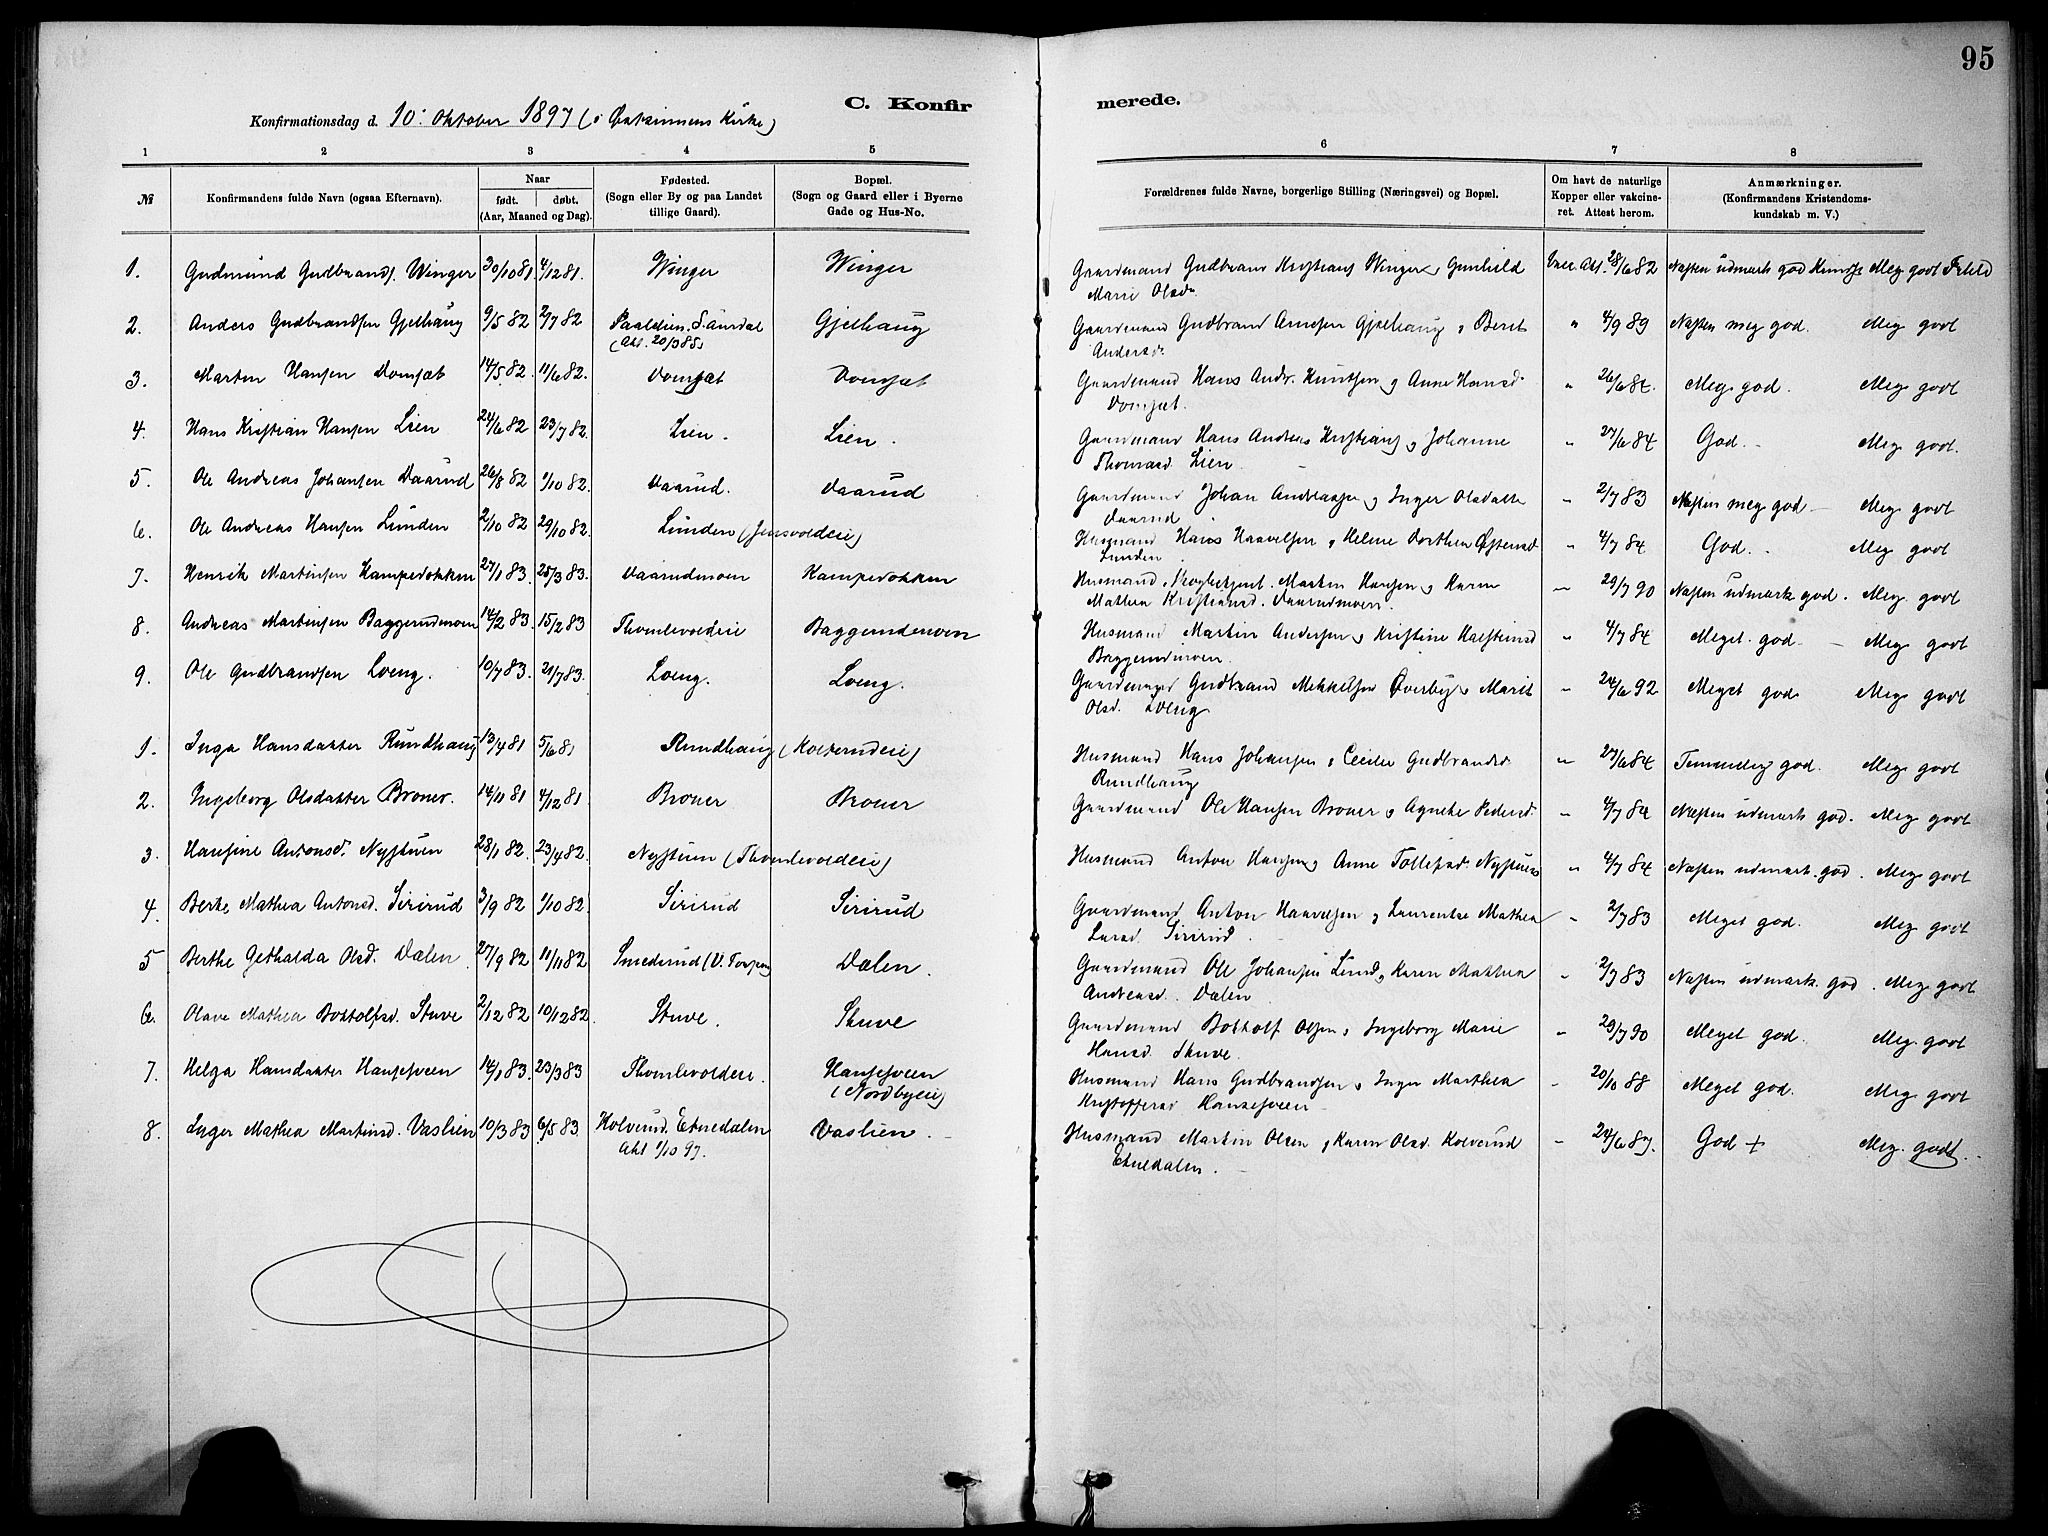 95
C. Konfir merede.
Konfirmationsdag d. 10: Oktober 1897 (i Østsinnens Kirke)
1 2 3 4 5 6 7 8
№ Konfirmandens fulde Navn (ogsaa Efternavn). Naar født. døbt. (Aar, Maaned og Dag). Fødested. (Sogn eller By og paa Landet tillige Gaard). Bopæl. (Sogn og Gaard eller i Byerne Gade og Hus-No. Forældrenes fulde Navne, borgerlige Stilling (Næringsvei) og Bopæl. Om havt de naturlige Kopper eller vakcineret. Attest herom. Anmærkninger. (Konfirmandens Kristendomskundskab m. V.)
1. Gudmund Gudbrands. Winger 30/10 81. 4/12 81. Winger Winger Gaardmand Gudbrand Kristians Winger, Gunhild Marie Olsdr. Vacc. Att. 28/6 82 Næsten udmærk god Meg godt
2. Anders Gudbrandsen Gjelhaug 9/5 82 2/7 82 S. Aurdal (Att. 20/3 85) Gjelhaug Gaardmand Gudbrand Arnesen Gjelhaug, Berit Andersdr. " 4/9 89 Næsten meg god. Meg godt
3. Martin Hansen Domsæt 14/5 82. 11/6 82. Domsæt Domsæt Gaardmand Hans Andr. Knutsen og Anne Hansd. Domsæt. " 26/6 84. Meg god. Meg godt
4. Hans Kristian Hansen Lien 24/6 82 23/7 82. Lien. Lien. Gaardmand Hans Andreas Kristians og Johanne Thomasd. Lien. " 27/6 84 God. Meg godt.
5. Ole Andreas Johansen Daarud 26/8 82 1/10 82. Daarud. Daarud Gaardmand Johan Andreassen og Inger Olsdatter Daarud " 2/7 83 Næsten meg god Meg godt
6. Ole Andreas Hansen Lunden 2/10 82 29/10 82. Lunden (Jensvoldeie) Husmand Hans Haavelsen, Helene Dorthea Østensd. Lunden " 4/7 84 God. Meg godt
7. Henrik Martinsen Kampedokken 27/1 83. 25/3 83. Daarudmoen Kampedokken Husmand, Martin Hansen og Karen Mathea Kristiansd. Daarudmoen. " 29/7 90 Næsten udmærk god. Meg. godt
8. Andreas Martinsen Baggerudmoen 14/2 83 15/2 83 Thomlevoldeie Baggerudmoen Husmand Martin Andersen og Kristine Halsteinsd Baggerudmoen. " 4/7 84 Meget god. Meg godt
9. Ole Gudbrandsen Loeng. 10/7 83. 21/7 83. Loeng. Loeng. Gaardmand Gudbrand Mikkelsen Øverby, Marit Olsd. Loeng " 24/6 92 Meget god Meg godt
1. Inga Hansdatter Rundhaug 13/4 81 5/6 81 Rundhaug (Kolterudeie) Husmand Hans Johansen, Cecilie Gudbrandsd. Rundhaug " 27/6 84 Temmelig god. Meg godt
2. Ingeborg Olsdatter Broner. 14/11 81 4/12 81 Broner Broner Gaardmand Ole Hansen Broner, Agnethe Pedersd. " 4/7 84 Næsten udmærk god. Meg godt
3. Hansine Antonsd. Nystuen 28/1 82. 23/4 82. Nystuen (Thomlevoldeie) Husmand Anton Hansen, Anne Tollefsd. Nystuen " 4/7 84 Næsten udmærk. god. Meg godt
4. Berte Mathea Antonsd. Siririud 3/9 82 1/10 82. Siririud Siririud Gaardmand Anton Haavelsen og Laurentse Mathea Larsd. Siririud. " 2/7 83 Meget god. Meg godt
5 Berthe Gethalda Olsd. Dælen 27/9 82 11/11 82 Smedsrud (V. Torpen) Dælen. Gaardmand Ole Johansen Lund, Karen Mathea Andreasd. Dælen " 2/7 83 Næsten udmærk. god. Meg. godt
6. Olave Mathea Bottolfsd. Stuve 2/12 82 10/12 82. Stuve. Stuve Gaardmand Bottolf Olsen, Ingeborg Marie Hansd. Stuve. " 29/7 90 Meget god. Meg. godt
7. Helga Hansdatter Hansesveen 14/1 83. 23/3 83 Thomlevoldeie. Hansesveen (Nordbyeie) Husmand Hans Gudbrandsen, Inger Marthea Kristoffersd Hansesveen " 20/10 88 Meget god. Meg godt
8. Inger Mathea Martinsd. Vaslien 10/3 83 6/5 83. Kolverud. Etnedalen Att 1/10 97. Vaslien. Husmand Martin Olsen, Karen Olsd. Kolverud Etnedalen. " 24/6 87. God + Meg. godt.